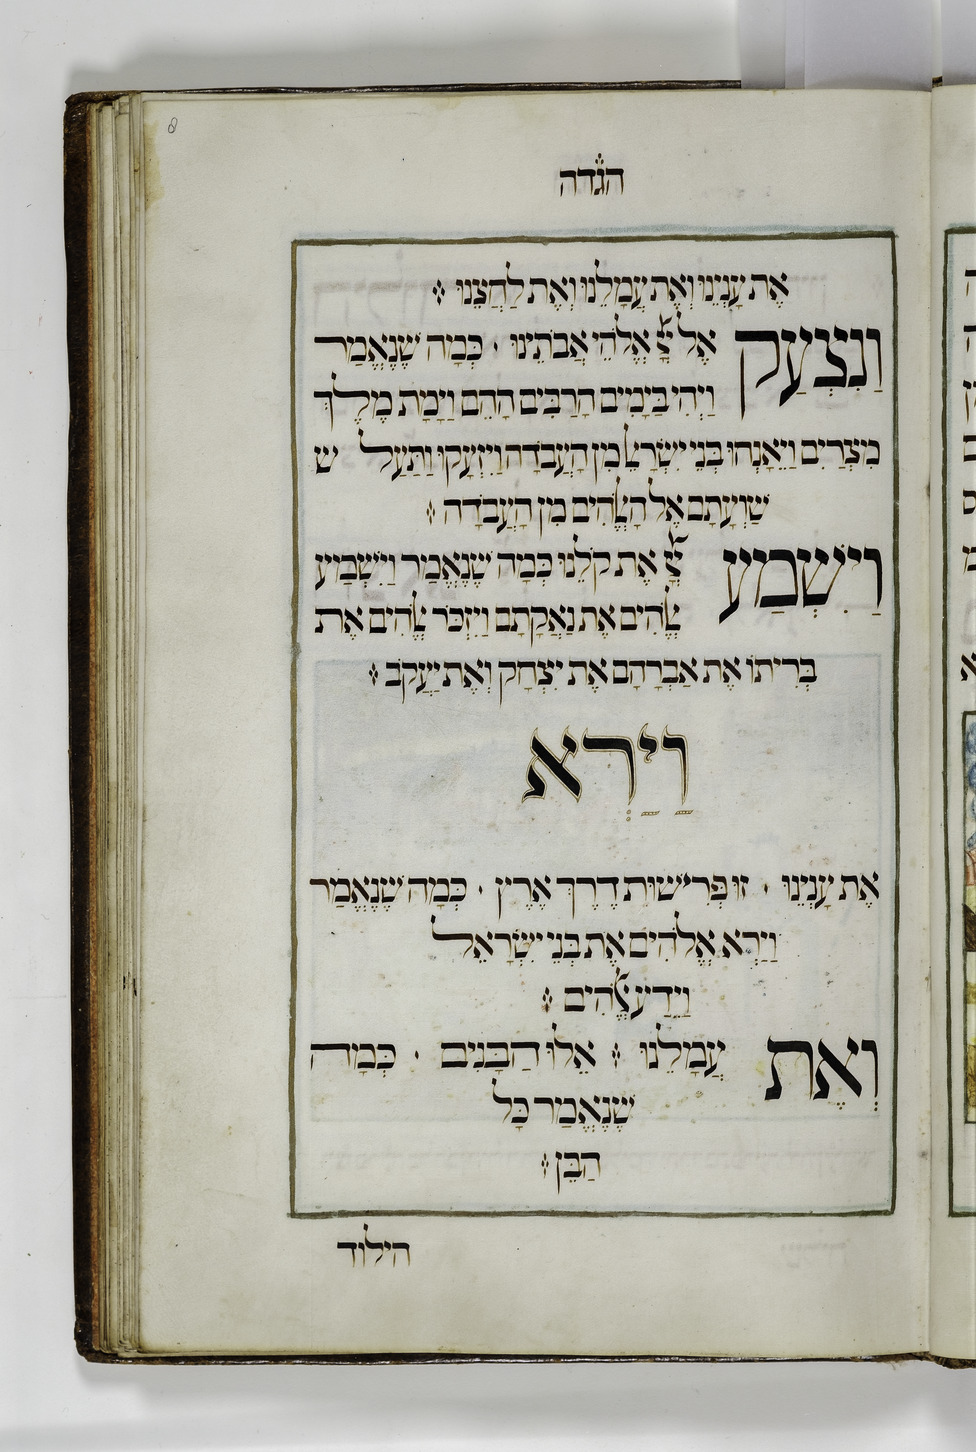 8
הגדה
אֶת עָנְיֵנוּ וְאֶת עֲמָלֵנוּ וְאֶת לַחֲצֵנוּ
וַנִּצְעַק אֶל אֱלֹהֵי אֲבֹתֵינוּ · כְּמָה שֶׁנֶּאֱמַר
וַיְהִי בַיָּמִים הָרַבִּים הָהֵם וַיָּמָת מֶלֶךְ
מִצְרַיִם וַיֵּאָנְחוּ בְנֵי יִשְׂרָﭏ מִן הָעֲבֹדָה וַיִּזְעָקוּ וַתַּעַל ש
שַׁוְעָתָם אֶל הָﭏֱהִים מִן הָעֲבֹדָה
וַיִּשְׁמַע אֶת קֹלֵנוּ כְּמָה שֶׁנֶּאֱמַר וַיִּשְׁמַע
ﭏֱהִים אֶת נַאֲקָתָם וַיִּזְכֹּר ﭏֱהִים אֶת
בְּרִיתוֹ אֶת אַבְרָהָם אֶת יִצְחָק וְאֶת יַעֲקֹב
וַיַּרְא
אֶת עָנְיֵנוּ · זוּ פְּרִישׁוּת דֶּרֶךְ אֶרֶץ · כְּמָה שֶׁנֶּאֱמַר
וַיַּרְא אֱלֹהִים אֶת בְּנֵי יִשְׂרָאֵל
וַיֵּדַע ﭏֱהִים
וְאֶת עֲמָלֵנוּ אֵלּוּ הַבָּנִים · כְּמָה
שֶׁנֶּאֱמַר כָּל
הַבֵּן
הילוד